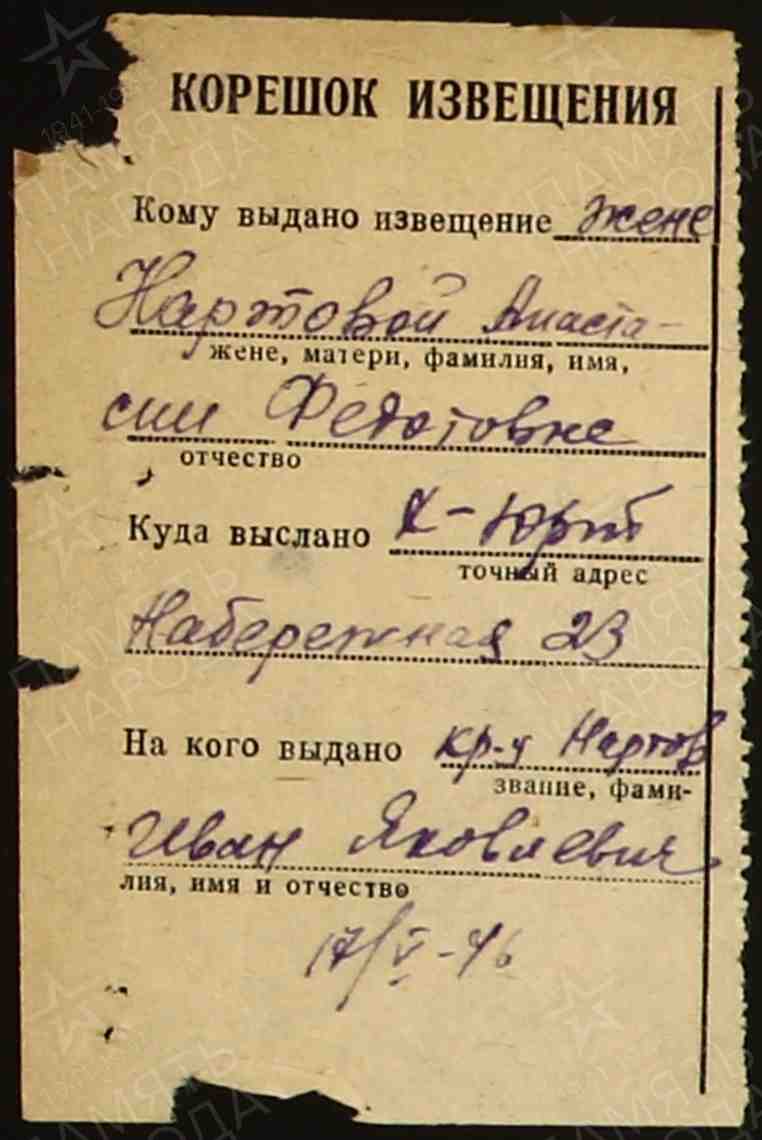 КОРЕШОК ИЗВЕЩЕНИЯ
Кому выдано извещение жене
Нартовой Анаста-
жене, матери, фамилия, имя,
сии Федотовне
отчество
Куда выслано Х-Юрт
точный адрес
Набережная 23
На кого выдано кр-ц Нартов
звание, фами-
Иван Яковлевич
лия, имя и отчество
17/V-46
1941-1945
ПАМЯТЬ
НАРОДА